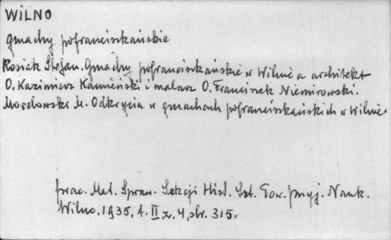 WILNO
gmachy pofranciszkańskie
Rosiak Stefan. Gmachy pofranciszkańskie w Wilnie a architekt
O. Kazimierz Kamieński i malarz O. Franciszek Niemirowski.
Morelowski M. Odkrycia w gmachach pofranciszkańskich w Wilnie.
Prac. Mat. Spraw. Sekcji Hist. Szt. Tow. Przyj. Nauk.
Wilno. 1935, t. II z. 4, str. 315.